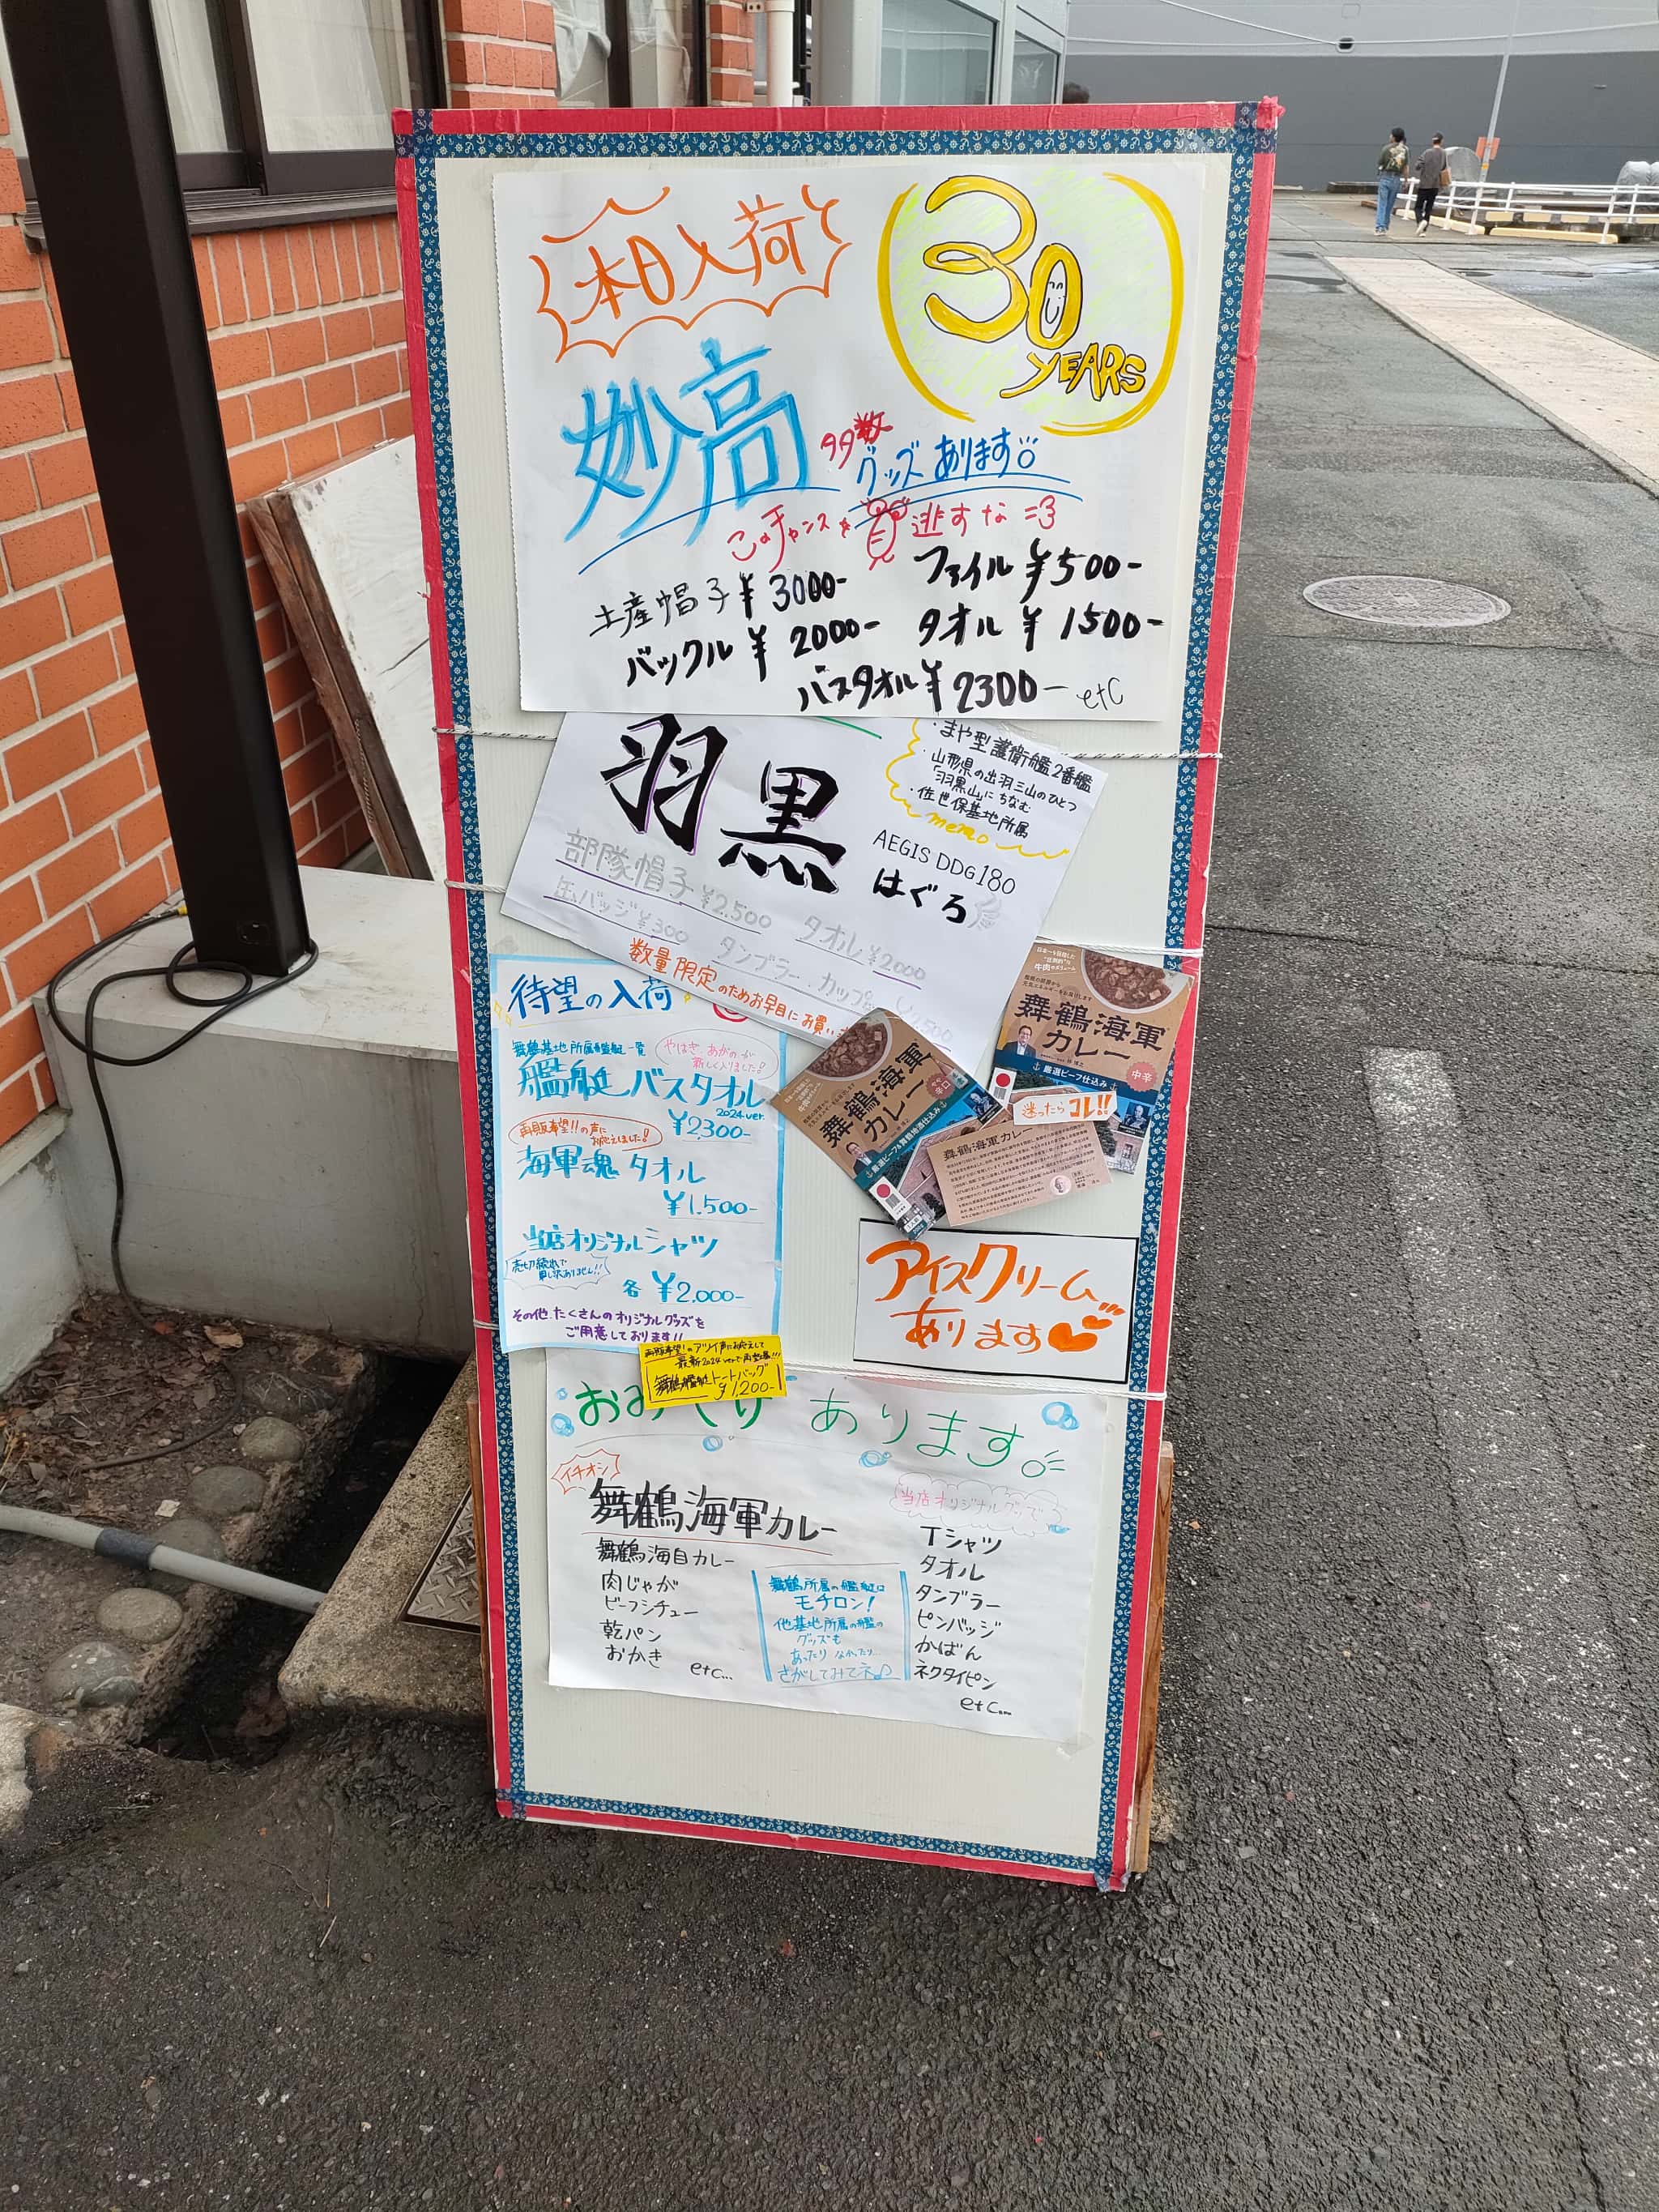 本日入荷
30
YEARS
妙高
多数
グッズあります
このチャンスを見逃すな=3
土産帽子¥3000-
ファイル¥500-
バックル¥2000-
タオル¥1500-
バスタオル¥2300- etc
羽黒
・まや型護衛艦2番艦
・山形県の出羽三山のひとつ
「羽黒山」にちなむ
・佐世保基地所属
memo
AEGIS DDG180
はぐろ
部隊帽子¥2.500
タオル¥2000
缶バッジ¥300
タンブラー.カップ
数量限定のためお早目にお買い
待望の入荷
舞鶴基地所属艦艇一覧
やはぎ、あがのが
新しく入りました!
艦艇バスタオル
2024.ver.
¥2300-
再販希望!!の声に
お応えしました!
海軍魂タオル
¥1.500-
当店オリジナルシャツ
売切続出で
申し訳ありません!!
各¥2.000-
その他たくさんのオリジナルグッズを
ご用意しております!!
再販希望!のアツイ声にお応えして
最新2024verで再登場!!!
舞鶴艦艇トートバッグ
¥1,200-
舞鶴海軍
カレー
中辛
厳選ビーフ仕込み
舞鶴海軍
カレー
辛口
厳選ビーフ&舞鶴地酒仕込み
迷ったらコレ!!
舞鶴海軍カレー
アイスクリーム
あります
おみ
あります
イチオシ
舞鶴海軍カレー
舞鶴海自カレー
肉じゃが
ビーフシチュー
乾パン
おかき
etc...
舞鶴所属の艦艇は
モチロン!
他基地所属の艦の
グッズも
あったりなかったり...
さがしてみてネ♪
当店オリジナルグッズ
Tシャツ
タオル
タンブラー
ピンバッジ
かばん
ネクタイピン
etc...